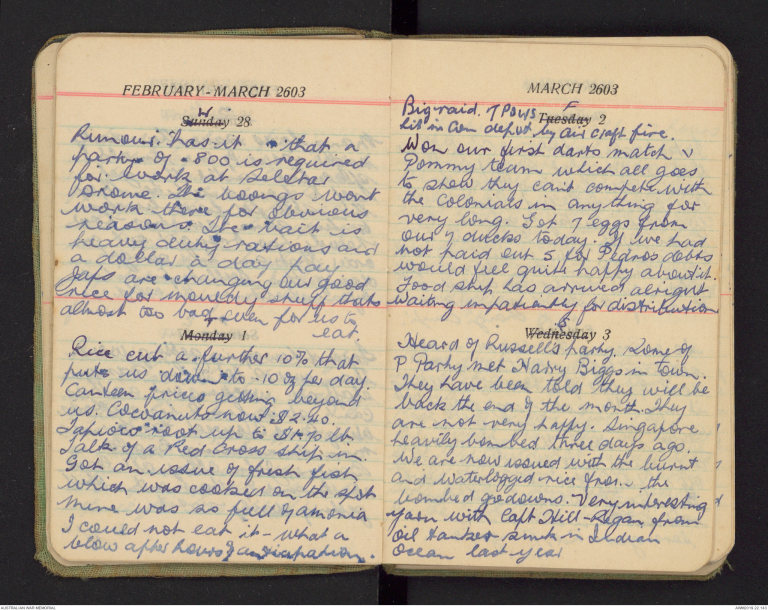 FEBRUARY - MARCH 2603
W
Sunday 28
Rumour has it that a
party of 800 is required
for work at Seletar
Drome. The boongs wont
work there for obvious
reasons. The bait is
heavy duty rations and
a dollar a day pay
Japs are changing our good
rice for mouldy stuff thats
almost too bad even for us to
eat.
T
Monday 1
Rice cut a further 10% that
puts us down to 10 oz per day.
Canteen prices getting beyond
us. Cocoanuts now $2.40.
Tapioca root up to $1.70 lb.
Talk of a Red Cross ship in.
Got an issue of fresh fish
which was cooked on the spot
mine was so full of amonia
I could not eat it - what a
blow after hours of anticipation.
MARCH 2603
F
Tuesday 2
Big raid. 7 POWS
hit in Am depot by air craft fire.
Won our first darts match v
Pommy team which all goes
to show they can't compete with
the Colonials in anything for
very long. Got 7 eggs from
our 7 ducks today. If we had
not paid out 5 for Pedros debts
would feel quite happy about it.
Food ship has arrived alright
Waiting impatiently for distribution
S
Wednesday 3
Heard of Russell's party. Some of
P. Party met Harry Biggs in town.
They have been told they will be
back the end of the month. They
are not very happy. Singapore
heavily bombed three days ago.
We are now issued with the burnt
and waterlogged rice from the
bombed godowns. Very interesting
yarn with Capt Hill-Regan from
oil tanker sunk in Indian
Ocean last year
AUSTRALIAN WAR MEMORIAL